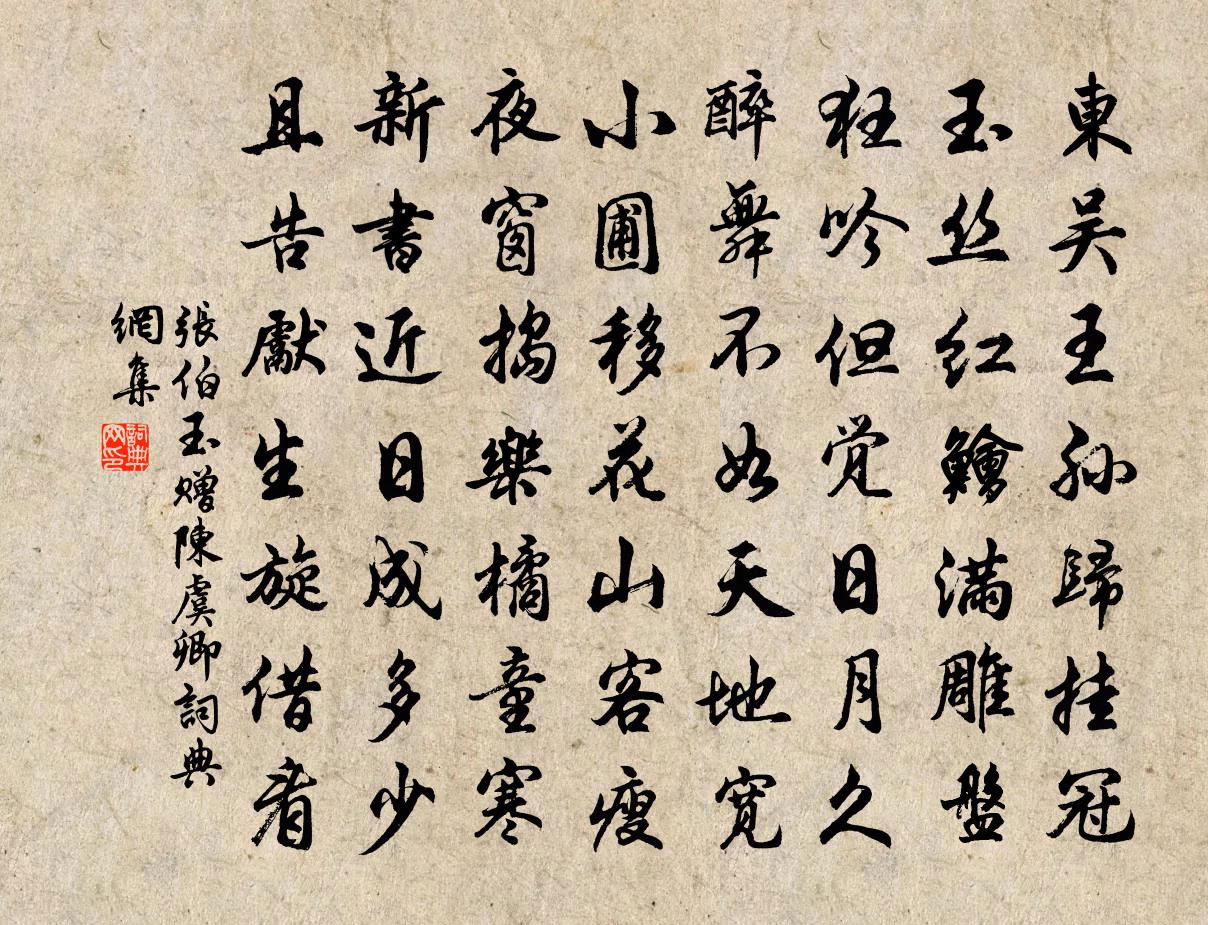 東吴王孙歸挂冠
玉丝红鱠满雕盤
狂吟但觉日月久
醉舞不如天地宽
小圃移花山客瘦
夜窗搗樂橘童寒
新書近日成多少
且告獻生旋借看
張伯玉赠陳虞卿詞典
網集
詞典网印